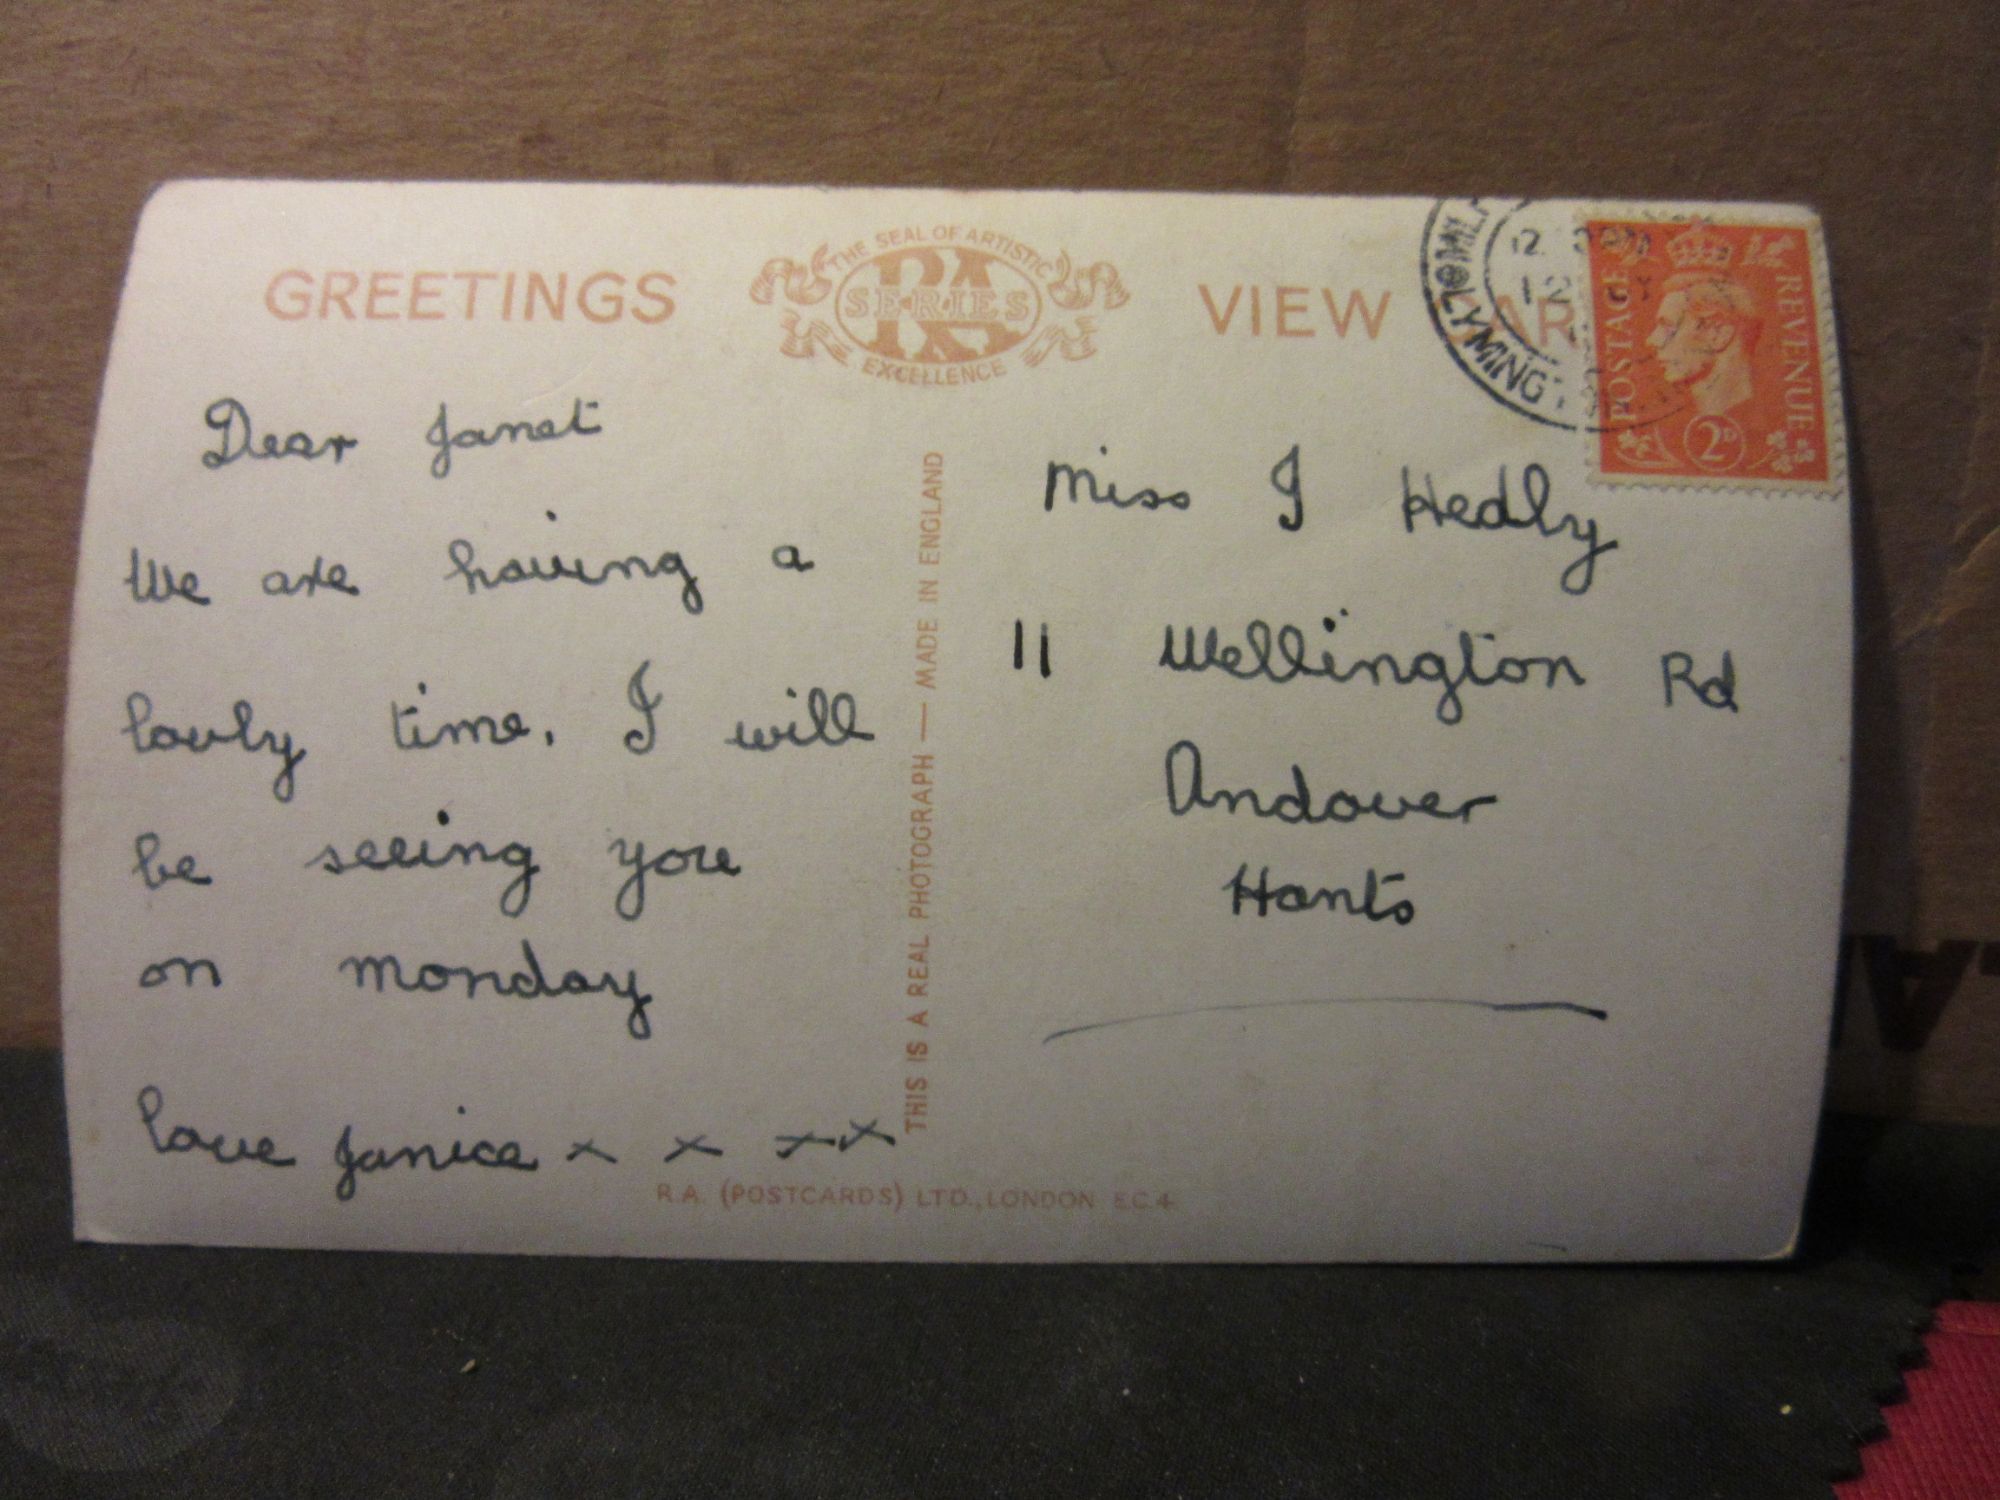 GREETINGS
THE SEAL OF ARTISTIC
RA
SERIES
EXCELLENCE
VIEW CAR
LYMINGTON
12
12
POSTAGE
REVENUE
2D
Dear Janet
We are having a
lovly time. I will
be seeing you
on monday
love Janice x x x x
THIS IS A REAL PHOTOGRAPH — MADE IN ENGLAND
Miss J Hedly
11 Wellington Rd
Andover
Hants
R.A. (POSTCARDS) LTD., LONDON E.C.4